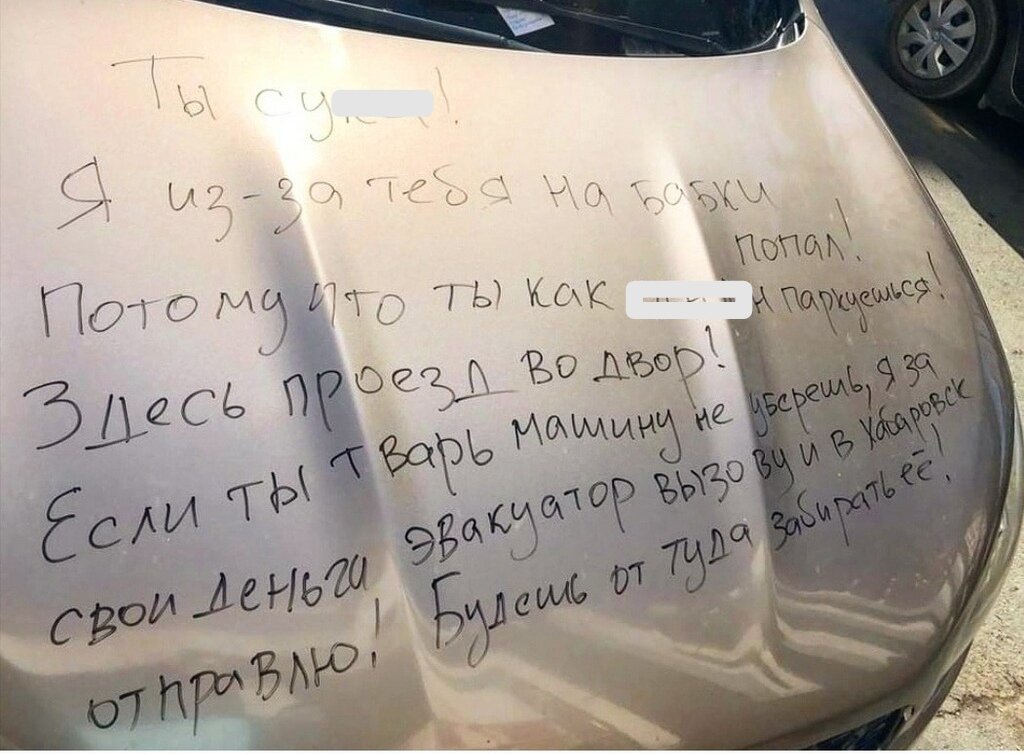 Ты су !
Я из-за тебя на бабки
попал!
Потому что ты как н паркуешься!
Здесь проезд во двор!
Если ты тварь машину не уберешь, я за
свои деньги эвакуатор вызову и в Хабаровск
отправлю! Будешь от туда забирать её!